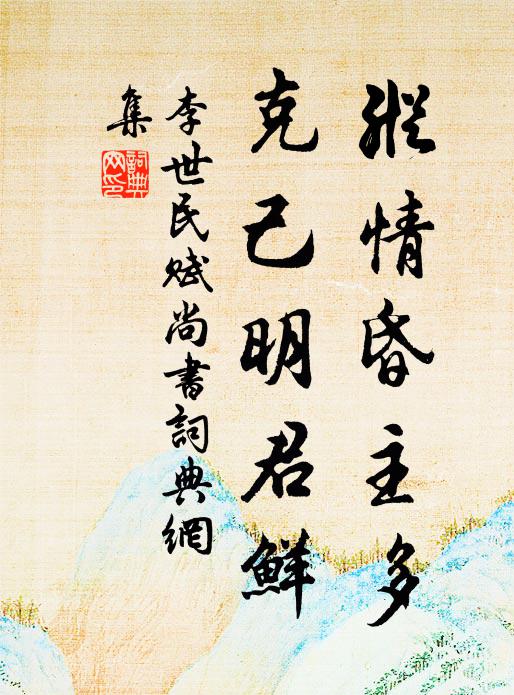 縱情昏主多
克己明君鮮
李世民賦尚書詞典網
集
詞典
网印